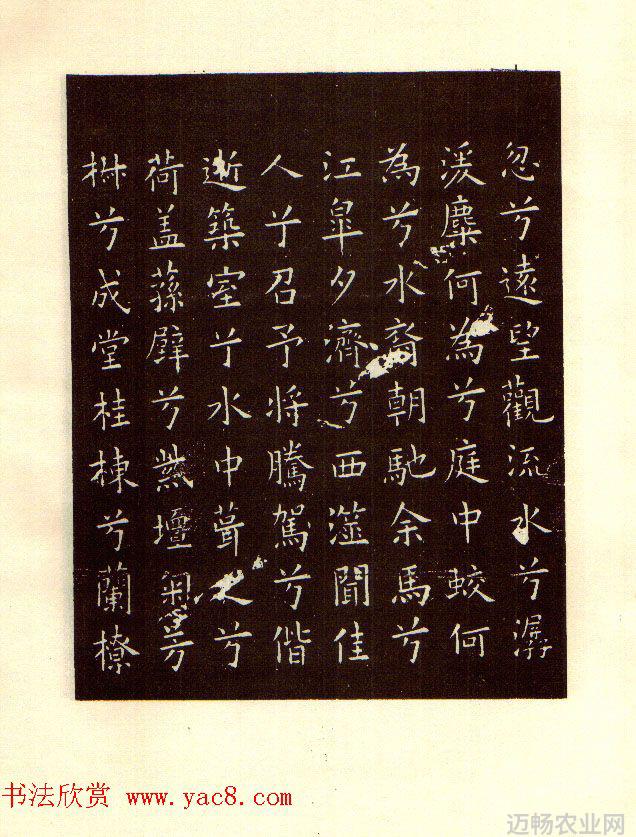 忽兮遠望觀流水兮潺
湲麋何為兮庭中蛟何
為兮水裔朝馳余馬兮
江皋夕濟兮西澨聞佳
人兮召予將騰駕兮偕
逝築室兮水中葺之兮
荷盖蓀壁兮紫壇芳
椒兮成堂桂棟兮蘭橑
书法欣赏 www.yac8.com
迈畅农业网